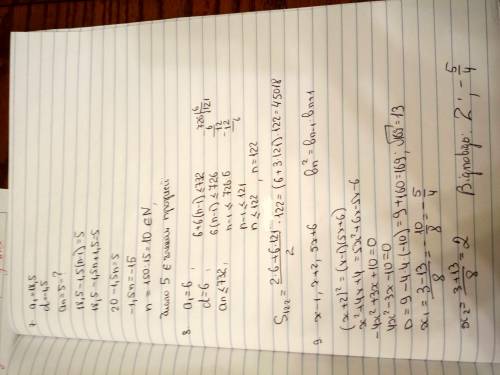 7. a₁=18,5
d=-1,5
aₙ=5 - ?
18,5-1,5(n-1)=5
18,5-1,5n+1,5=5
20-1,5n=5
-1,5n=-15
n=150:15=10 ∈ N,
Число 5 є членом прогресії
8 a₁=6 ;
d=6 ;
aₙ≤732,
6+6(n-1)≤732
6(n-1)≤726
n-1≤726:6
n-1≤121
n≤122 , n=122
726 6
6 121
12
12
6
S₁₂₂ = (2·6+6·121)/2 ·122=(6+3·121)·122=45018
9 x-1, x+2, 5x+6
bₙ²=bₙ₋₁·bₙ₊₁
(x+2)²=(x-1)(5x+6)
x²+4x+4=5x²+6x-5x-6
-4x²+3x+10=0
4x²-3x-10=0
D=9-4·4·(-10)=9+160=169; √169=13
x₁=(3-13)/8=-10/8=-5/4
x₂=(3+13)/8=2
Відповідь: 2; -5/4